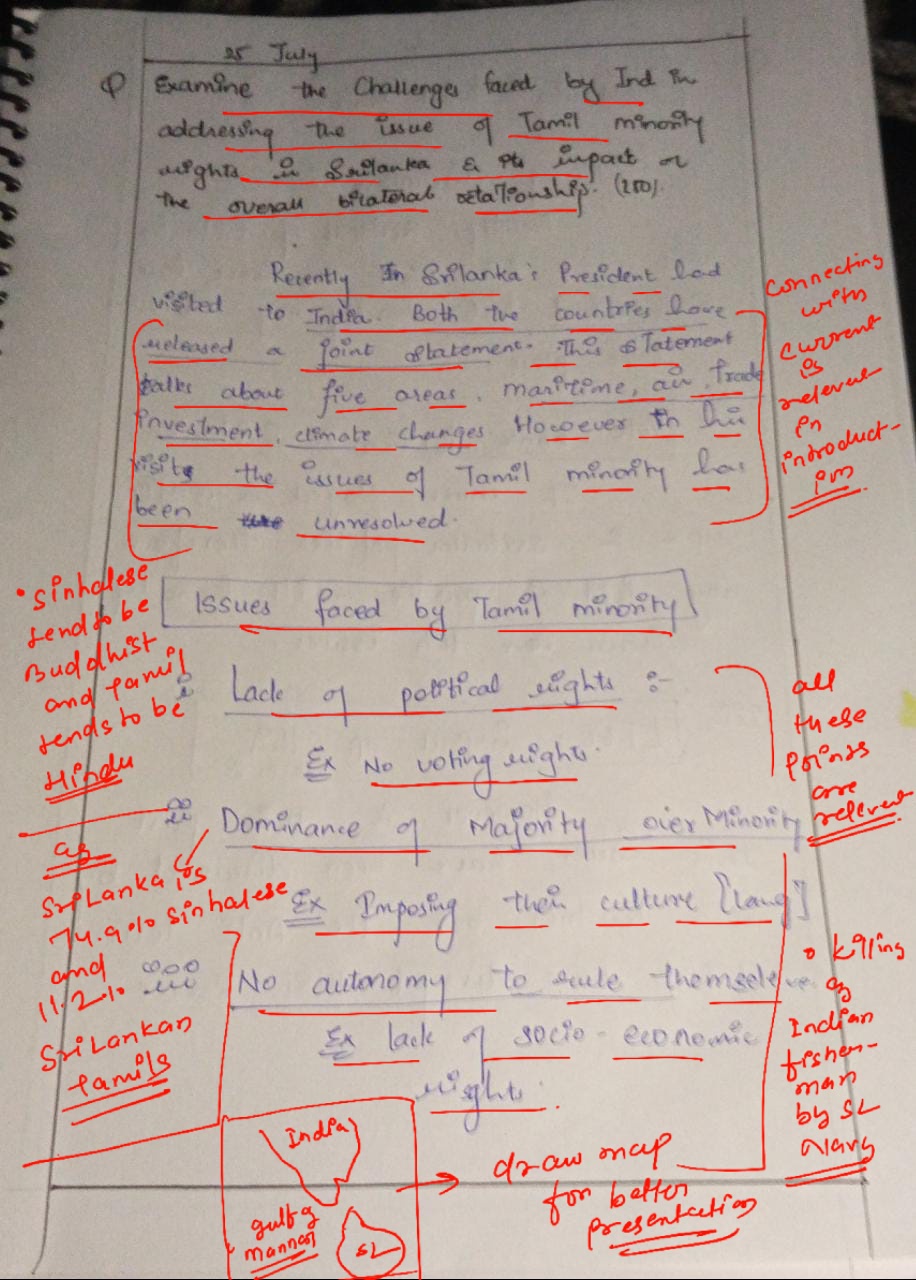 25 July
Q Examine the Challenges faced by Ind in
addressing the issue of Tamil minority
rights in Srilanka & its impact on
the overall bilateral relationship. (250).
Recently In Srilanka's President had
visited to India. Both the countries have
released a joint statement. This statement
talks about five areas, maritime, air, trade
investment, climate changes. However in his
visits the issues of Tamil minority has
been unresolved.
connecting
with
current
is
relevant
in
introduct-
ion
Issues faced by Tamil minority
i Lack of political rights :-
Ex No voting rights.
ii Dominance of Majority over Minority
Ex Imposing their culture [lang]
iii No autonomy to rule themselves
Ex lack of socio-economic
rights.
• Sinhalese
tend to be
Buddhist
and Tamil
tends to be
Hindu
as
Sri Lanka is
74.9% Sinhalese
and
11.2%
Sri Lankan
Tamils
all
these
points
are
relevant
• killing
of
Indian
fisher-
man
by SL
Navy
India
gulf of
mannar
SL
draw map
for better
presentation